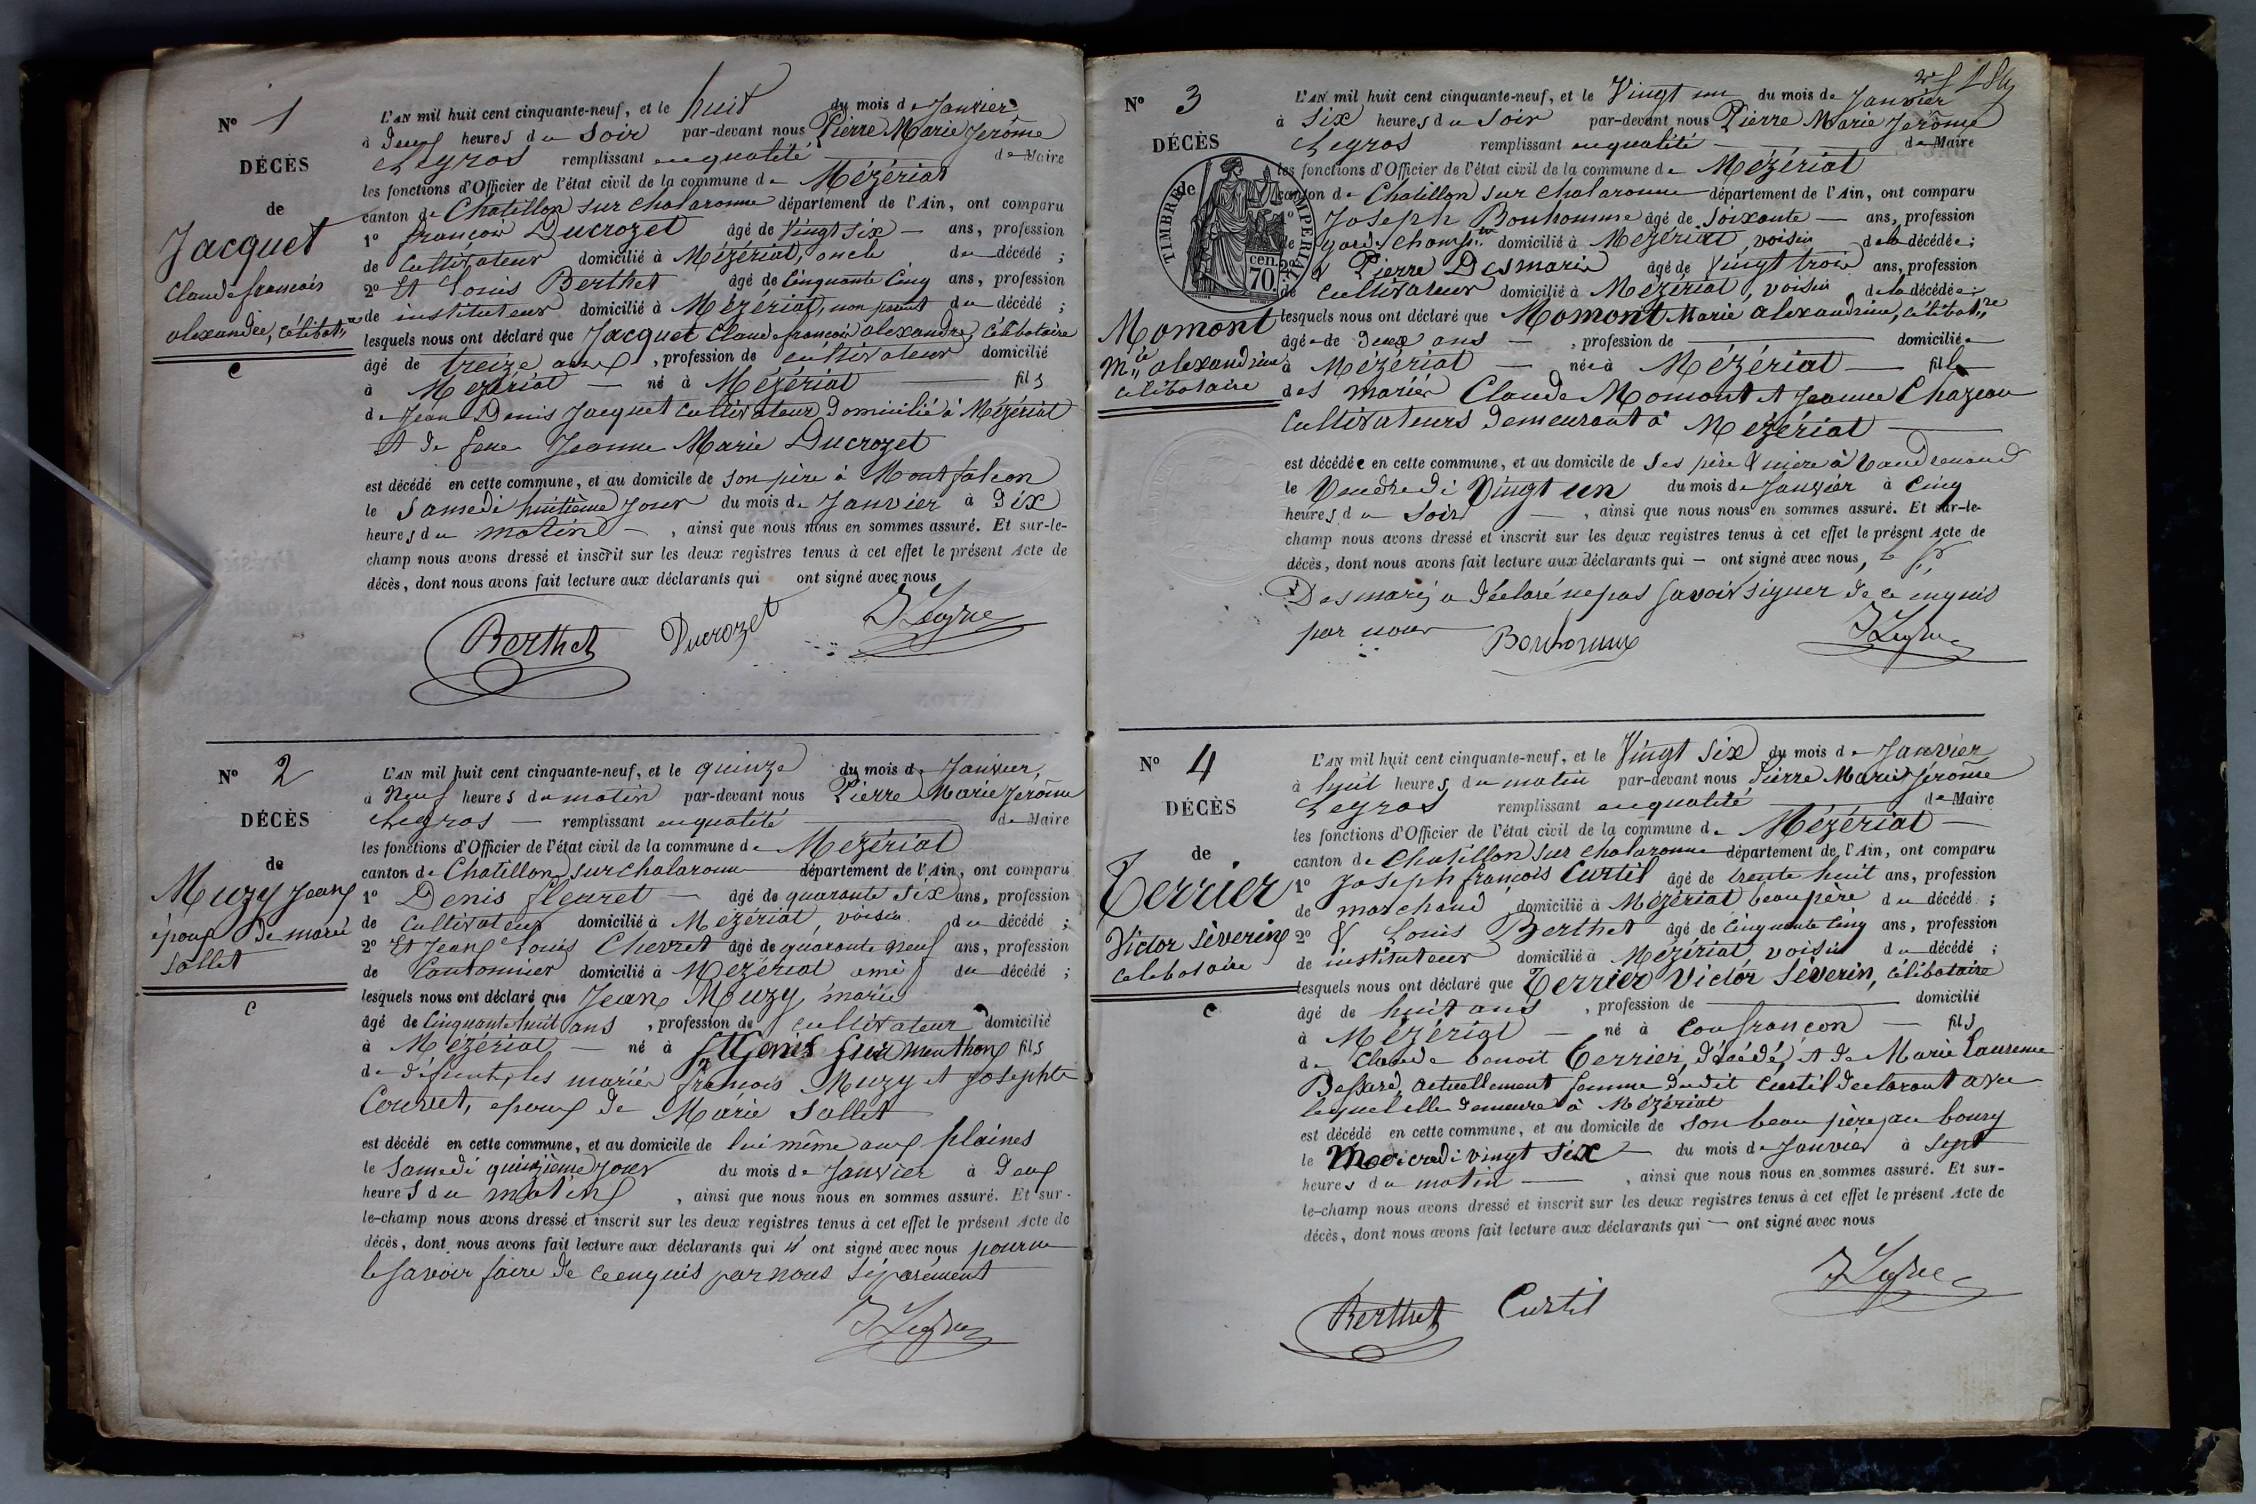 N° 1
DÉCÈS
de
Jacquet
Claude françois
alexandre, célibat.re
C
L'AN mil huit cent cinquante-neuf, et le huit du mois de Janvier
à deux heures du Soir par-devant nous Pierre Marie Jerôme
Legros remplissant en qualité de Maire
les fonctions d'Officier de l'état civil de la commune de Mézériat
canton de Chatillon sur chalaronne département de l'Ain, ont comparu
1° françois Ducrozet âgé de vingt six ans, profession
de Cultivateur domicilié à Mézériat, oncle du décédé ;
2° Et Louis Berthet âgé de Cinquante Cinq ans, profession
de instituteur domicilié à Mézériat, non parent du décédé ;
lesquels nous ont déclaré que Jacquet Claude françois alexandre, Célibataire
âgé de treize ans, profession de cultivateur domicilié
à Mézériat né à Mézériat fils
de Jean Denis Jacquet Cultivateur domicilié à Mézériat
Et de feue Jeanne Marie Ducrozet
est décédé en cette commune, et au domicile de son père à Montfalcon
le Samedi huitième jour du mois de Janvier à dix
heures du matin, ainsi que nous nous en sommes assuré. Et sur-le-
champ nous avons dressé et inscrit sur les deux registres tenus à cet effet le présent Acte de
décès, dont nous avons fait lecture aux déclarants qui ont signé avec nous
Berthet Ducrozet J Legros
N° 2
DÉCÈS
de
Muzy Jean
époux de marie
Sallet
C
L'AN mil huit cent cinquante-neuf, et le quinze du mois de Janvier,
à Neuf heures du matin par-devant nous Pierre Marie Jerôme
Legros remplissant en qualité de Maire
les fonctions d'Officier de l'état civil de la commune de Mézériat
canton de Chatillon sur chalaronne département de l'Ain, ont comparu
1° Denis fleuret âgé de quarante six ans, profession
de Cultivateur domicilié à Mézériat, voisin du décédé ;
2° Et Jean Louis Chevret âgé de quarante neuf ans, profession
de Cantonnier domicilié à Mézériat ami du décédé ;
lesquels nous ont déclaré que Jean Muzy, marié
âgé de Cinquante huit ans, profession de cultivateur domicilié
à Mézériat né à St Genis sur menthon fils
de défunts, les mariés françois Muzy et Josephte
Courvet, époux de Marie Sallet
est décédé en cette commune, et au domicile de lui même aux plaines
le Samedi quinzième jour du mois de Janvier à deux
heures du matin, ainsi que nous nous en sommes assuré. Et sur-
le-champ nous avons dressé et inscrit sur les deux registres tenus à cet effet le présent Acte de
décès, dont nous avons fait lecture aux déclarants qui n'ont signé avec nous pour ne
le savoir faire de ce enquis par nous séparément
J Legros
N° 3
DÉCÈS
TIMBRE IMPERIAL
70 cen.
Momont
M.ie alexandrine
célibataire
L'AN mil huit cent cinquante-neuf, et le Vingt un du mois de Janvier
à Six heures du Soir par-devant nous Pierre Marie Jerôme
Legros remplissant en qualité de Maire
les fonctions d'Officier de l'état civil de la commune de Mézériat
canton de Chatillon sur chalaronne département de l'Ain, ont comparu
1° Joseph Bonhomme âgé de Soixante ans, profession
de garde champ.tre domicilié à Mézériat, voisin de la décédée ;
2° & Pierre Desmaris âgé de vingt trois ans, profession
de cultivateur domicilié à Mézériat, voisin de la décédée ;
lesquels nous ont déclaré que Momont Marie alexandrine, célibat.re
âgée de deux ans, profession de domiciliée
à Mézériat née à Mézériat fille
des mariés Claude Momont et Jeanne Chazeau
Cultivateurs demeurant à Mézériat
est décédée en cette commune, et au domicile de ses père & mère à
le Vendredi Vingt un du mois de Janvier à Cinq
heures du Soir, ainsi que nous nous en sommes assuré. Et sur-le-
champ nous avons dressé et inscrit sur les deux registres tenus à cet effet le présent Acte de
décès, dont nous avons fait lecture aux déclarants qui ont signé avec nous, le Sr
Desmaris a déclaré ne pas savoir signer de ce enquis
par nous Bonhomme J Legros
N° 4
DÉCÈS
de
Terrier
Victor Séverin
célibataire
C
L'AN mil huit cent cinquante-neuf, et le Vingt six du mois de Janvier
à huit heures du matin par-devant nous Pierre Marie Jérôme
Legros remplissant en qualité de Maire
les fonctions d'Officier de l'état civil de la commune de Mézériat
canton de Chatillon sur chalaronne département de l'Ain, ont comparu
1° Joseph françois Curtil âgé de trente huit ans, profession
de marchand domicilié à Mézériat beau père du décédé ;
2° & Louis Berthet âgé de Cinquante Cinq ans, profession
de instituteur domicilié à Mézériat, voisin du décédé ;
lesquels nous ont déclaré que Terrier Victor Séverin, célibataire
âgé de huit ans, profession de domicilié
à Mézériat né à Confrançon fils
de Claude benoit Terrier, décédé, et de Marie Laurence
Bessard, actuellement femme dudit Curtil declarant avec
lequel elle demeure à Mézériat
est décédé en cette commune, et au domicile de son beau père, au bourg
le Mercredi vingt six du mois de Janvier à Sept
heures du matin, ainsi que nous nous en sommes assuré. Et sur-
le-champ nous avons dressé et inscrit sur les deux registres tenus à cet effet le présent Acte de
décès, dont nous avons fait lecture aux déclarants qui ont signé avec nous
J Legros
Berthet Curtil